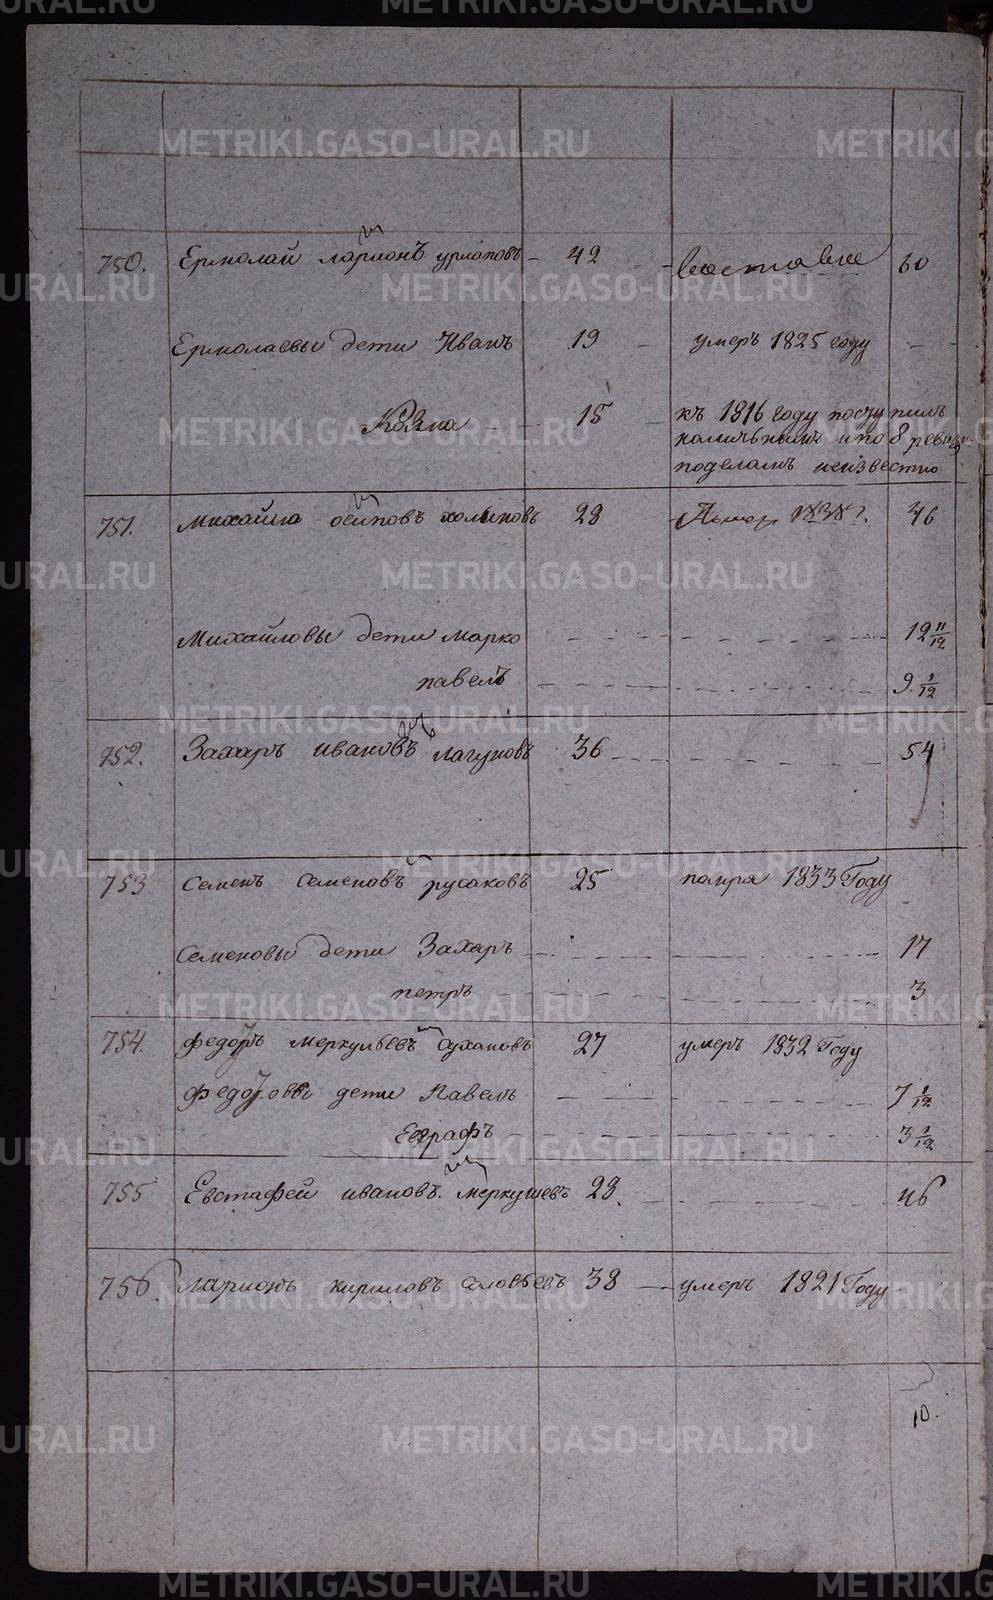 750. Ермолай Ларионъ Урлаповъ 42 60
Ермолаевы дети Иванъ 19 умеръ 1825 году
Козма 15 къ 1816 году поступилъ
наличнымъ и по 8 ревизи
поделамъ неизвестно
751. Михайло Осиповъ Холмновъ 28 1838 г. 46
Михайловы дети Марко 12 11/12
Павелъ 9 1/12
752. Захаръ Ивановъ Лагуновъ 36 54
753 Семенъ Семеновъ Русаковъ 25 помре 1833 Году
Семеновы дети Захаръ 17
Петръ 3
754. Федоръ Меркульевъ Сухановъ 27 умеръ 1832 Году
Федоровы дети Павелъ 7 1/12
Евграфъ 3 1/12
755 Евстафей Ивановъ Меркушевъ 28. 46
756. Ларионъ Кириловъ Соловьевъ 38 умеръ 1821 Году
10.
METRIKI.GASO-URAL.RU